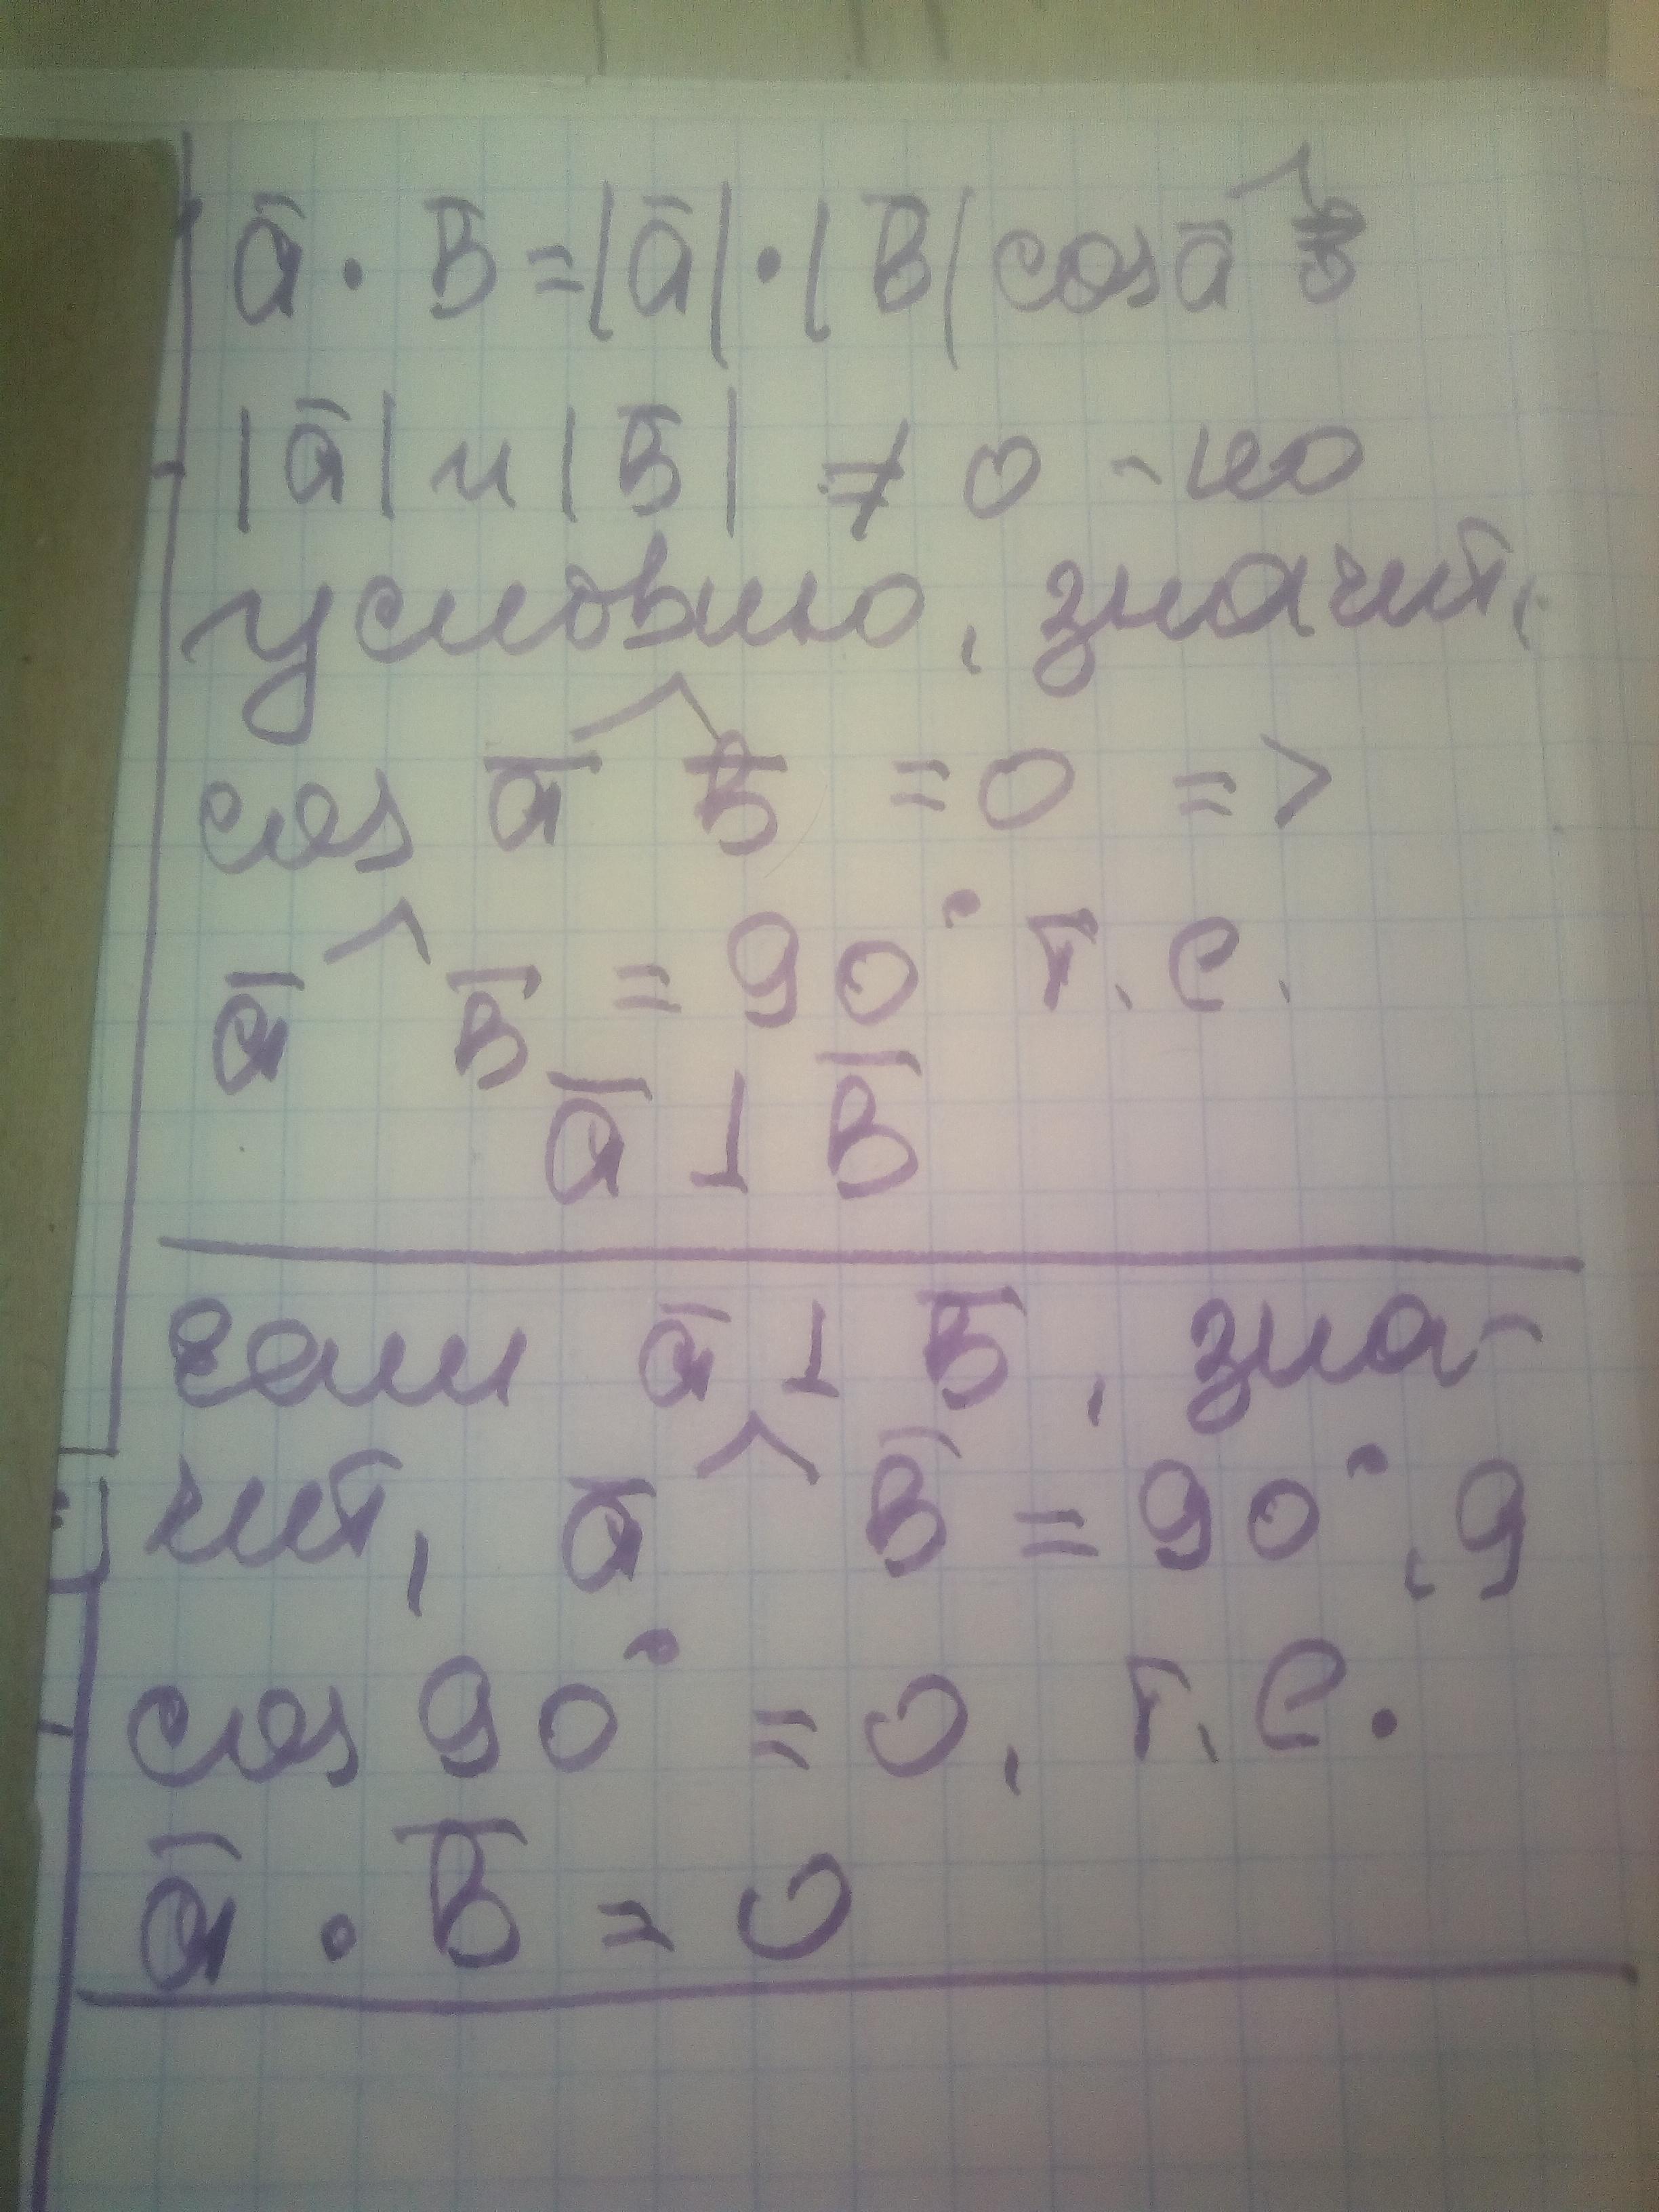 ā · b̄ = |ā| · |b̄| cos ā ^ b̄
|ā| и |b̄| ≠ 0 - по
условию, значит,
cos ā ^ b̄ = 0 =>
ā ^ b̄ = 90° т.е.
ā ⊥ b̄
если ā ⊥ b̄, зна-
чит, ā ^ b̄ = 90°, g
cos 90° = 0, т.е.
ā · b̄ = 0